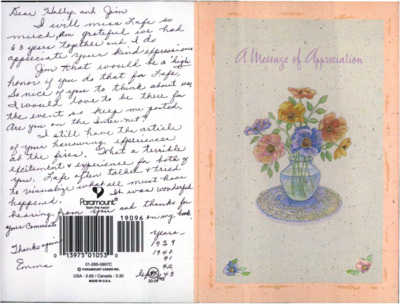 Dear Holly and Jim
I will miss Lafe so
much. Am grateful we had
63 years together and I do
appreciate your kind expressions
Jim that would be a "high
honor if you do that for Lafe.
So nice of you to think about us,
I would love to be there for
the event so keep me posted.
Are you on the Internet?
I still have the article
of your harrowing experiences
at the fires. What a terrible
excitement & experience for both of
you. Lafe often talked & tried
to visualize what all must have
happened. It was wonderful
hearing from you and thanks for
your comments on my book
Thanks again
Emma
years
1939
1940
41
42
43
Paramount
from the heart
19096
0 13975 01053 0
01-265-0907C
© PARAMOUNT CARDS INC.
USA - 2.50 / Canada - 3.30
MADE IN U.S.A.
A Message of Appreciation